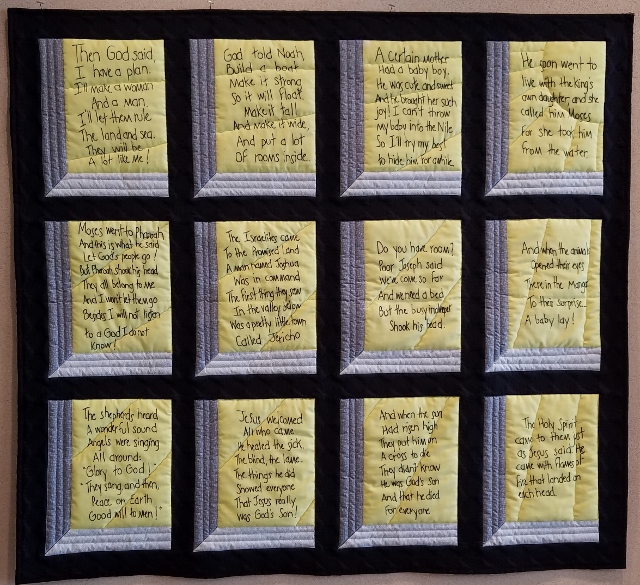 Then God said,
I have a plan.
I'll make a woman
And a man.
I'll let them rule
The land and sea.
They will be
A lot like me!
God told Noah,
Build a boat
Make it strong
So it will float
Make it tall
And make it wide,
And put a lot
Of rooms inside.
A certain mother
Had a baby boy.
He was cute and sweet
And he brought her such
joy! I can't throw
my baby into the Nile
So I'll try my best
to hide him for awhile
He soon went to
live with the King's
own daughter, and she
called him Moses
For she took him
from the water.
Moses went to Pharaoh,
And this is what he said
Let God's people go!
But Pharaoh shook his head
They all belong to me
And I won't let them go
Besides I will not listen
to a God I do not
know!
The Israelites came
To the Promised land
A man named Joshua
Was in command
The first thing they saw
In the valley below
Was a pretty little town
Called Jericho
Do you have room?
Poor Joseph said
We've come so far
And we need a bed
But the busy innkeeper
Shook his head.
And when the animals
Opened their eyes
There in the Manger
To their surprise...
A baby lay!
The shepherds heard
A wonderful sound
Angels were singing
All around:
"Glory to God!"
"They sang, and then,
Peace on Earth
Good will to men!"
Jesus welcomed
All who came
He healed the sick,
The blind, the lame.
The things he did
Showed everyone
That Jesus really
Was God's Son!
And when the sun
Had risen high
They put him on
A cross to die
They didn't know
He was God's Son
And that he died
For everyone
The Holy Spirit
came to them just
as Jesus said. He
came with flames of
fire that landed on
each head.